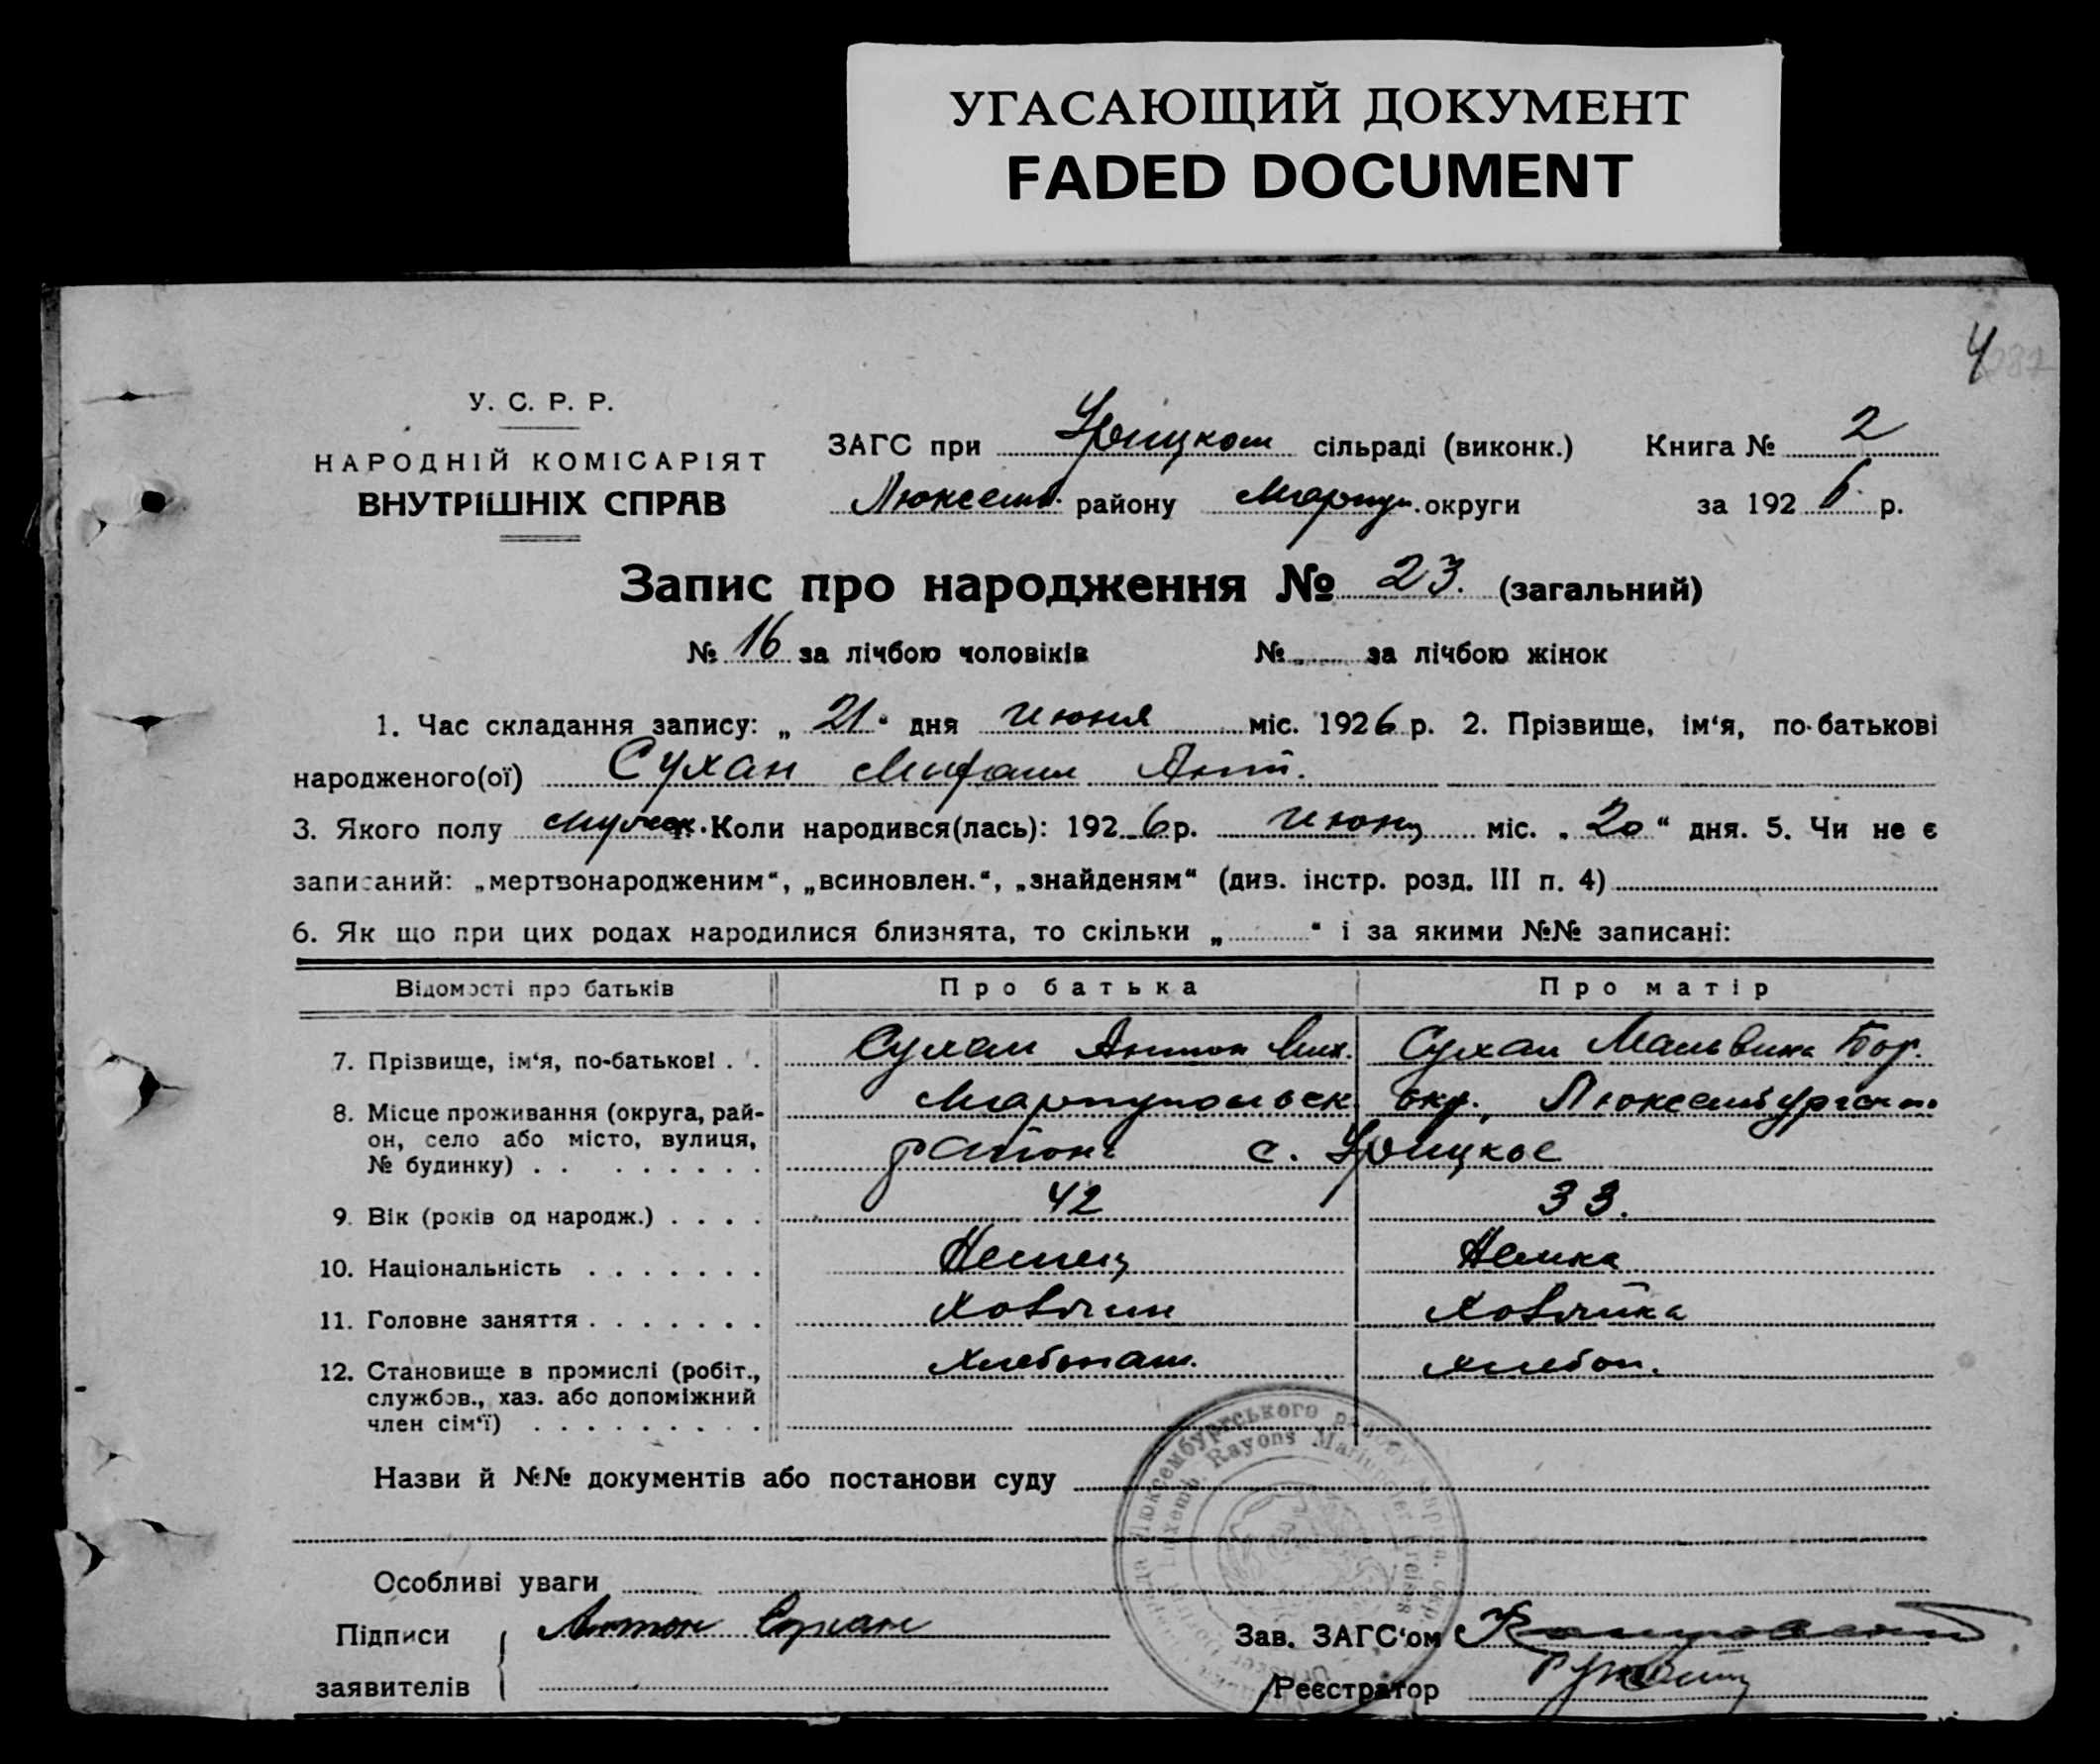 УГАСАЮЩИЙ ДОКУМЕНТ
FADED DOCUMENT
4
У. С. Р. Р.
НАРОДНІЙ КОМІСАРІЯТ
ВНУТРІШНІХ СПРАВ
ЗАГС при Урицком сільраді (виконк.) Книга № 2
Люксемб. району Мариуп. округи за 1926 р.
Запис про народження № 23. (загальний)
№ 16 за лічбою чоловіків № за лічбою жінок
1. Час складання запису: „ 21 “ дня Июня міс. 1926 р. 2. Прізвище, ім‘я, по-батькові
народженого(ої) Сухан Михаил Ант.
3. Якого полу мужск. 4. Коли народився(лась): 1926 р. Июня міс. „ 20 “ дня. 5. Чи не є
записаний: „мертвонародженим“, „всиновлен.“, „знайденям“ (див. інстр. розд. III п. 4)
6. Як що при цих родах народилися близнята, то скільки „ “ і за якими №№ записані:
Відомості про батьків Про батька Про матір
7. Прізвище, ім‘я, по-батькові . . Сухан Антон Мих. Сухан Мальвина
8. Місце проживання (округа, рай- Мариупольск. окр., Люксембургского
он, село або місто, вулиця, района с. Урицкое
№ будинку) . . . . . . . .
9. Вік (років од народж.) . . . . 42 33.
10. Національність . . . . . . . Немец Немка
11. Головне заняття . . . . . . . Хозяин Хозяйка
12. Становище в промислі (робіт., Хлебопаш. Хлебоп.
службов., хаз. або допоміжний
член сім‘ї) . . . . . . . . .
Назви й №№ документів або постанови суду
Особливі уваги
Підписи Антон Сухан Зав. ЗАГС‘ом
заявителів Реєстратор